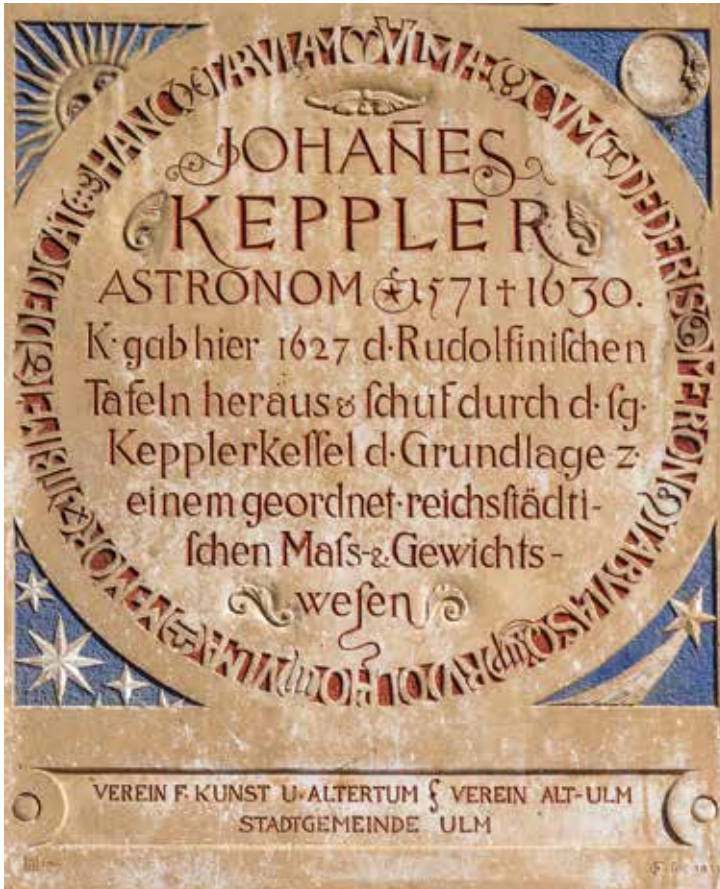 HANC TABVLAM VLMAE CVM DEDERIS
TABVLAS
DEDICAT
JOHAÑES
KEPPLER
ASTRONOM ★1571†1630.
K·gab hier 1627 d·Rudolfiniſchen
Tafeln heraus & ſchuf durch d·ſg·
Kepplerkeſſel d·Grundlage z·
einem geordnet·reichsſtädti-
ſchen Maſs-&Gewichts-
weſen
VEREIN F·KUNST U·ALTERTUM ʃ VEREIN ALT-ULM
STADTGEMEINDE ULM